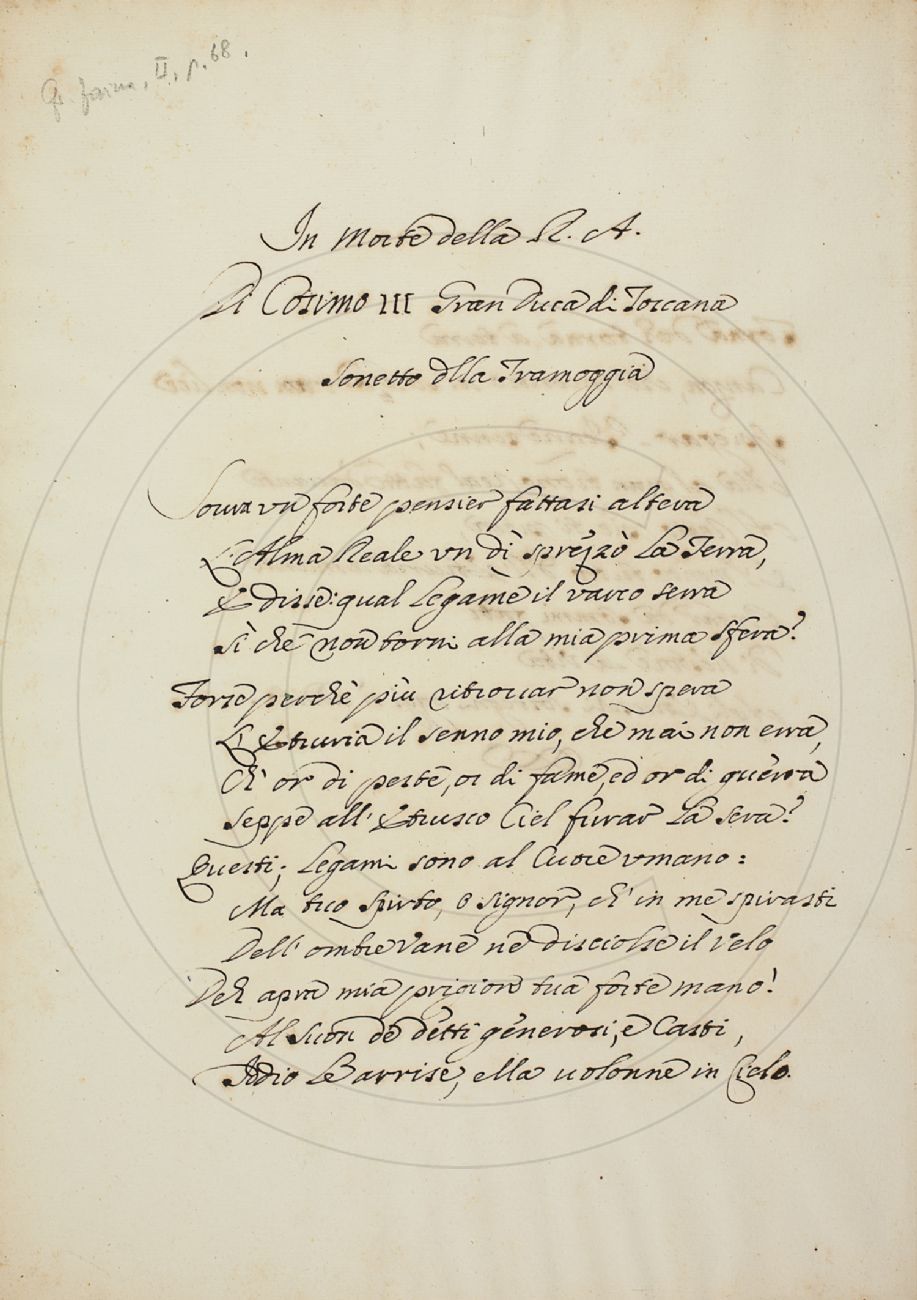 II, p. 68.
In Morte della R. A.
Di Cosimo III Gran Duca di Toscana
Sonetto dlla Tramoggia
Sovra vn forte pensier fattasi altera
L'Alma Reale vn dì sprezzò La Terra,
E disse: qual Legame il varco serra
Sì che non torni alla mia prima sfera?
Forse perchè più ritrovar non spera
L'Etruria il senno mio, che mai non erra,
Ch' or di peste, or di fame, ed or di guerra
Seppe all' Etrusco Ciel furar La sera?
Questi; Legami sono al Cuore vmano:
Ma tuo Spirto, o Signor, ch' in me spirasti
Dell' ombre vane ne disciolse il velo
Deh apra mia prigione tua forte mano!
Al suon de detti generosi, e Casti,
Iddio Le arrise, ella volonne in Cielo.